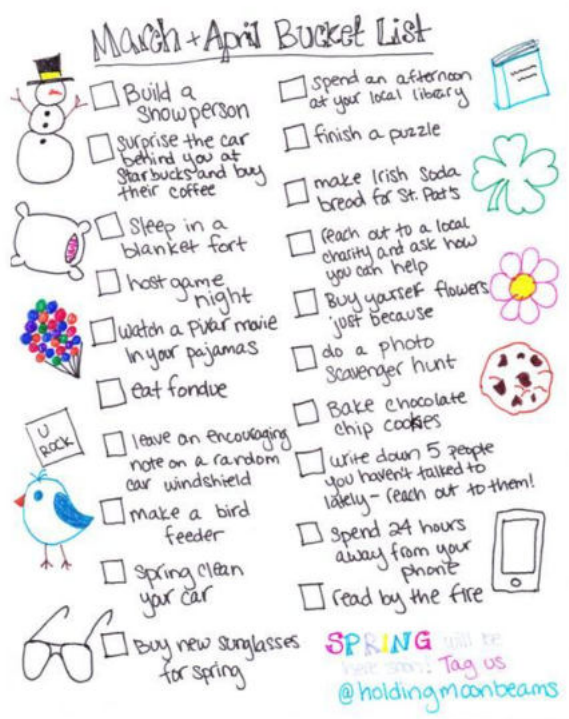 March + April Bucket List
Build a
snowperson
surprise the car
behind you at
Starbucks and buy
their coffee
Sleep in a
blanket fort
host game
night
watch a Pixar movie
in your pajamas
eat fondue
U
ROCK
leave an encouraging
note on a random
car windshield
make a bird
feeder
Spring clean
your car
Buy new sunglasses
for spring
spend an afternoon
at your local library
finish a puzzle
make Irish Soda
bread for St. Pat's
reach out to a local
charity and ask how
you can help
Buy yourself flowers
just because
do a photo
Scavenger hunt
Bake chocolate
chip cookies
write down 5 people
you haven't talked to
lately - reach out to them!
Spend 24 hours
away from your
phone
read by the fire
SPRING will be
here soon! Tag us
@holdingmoonbeams